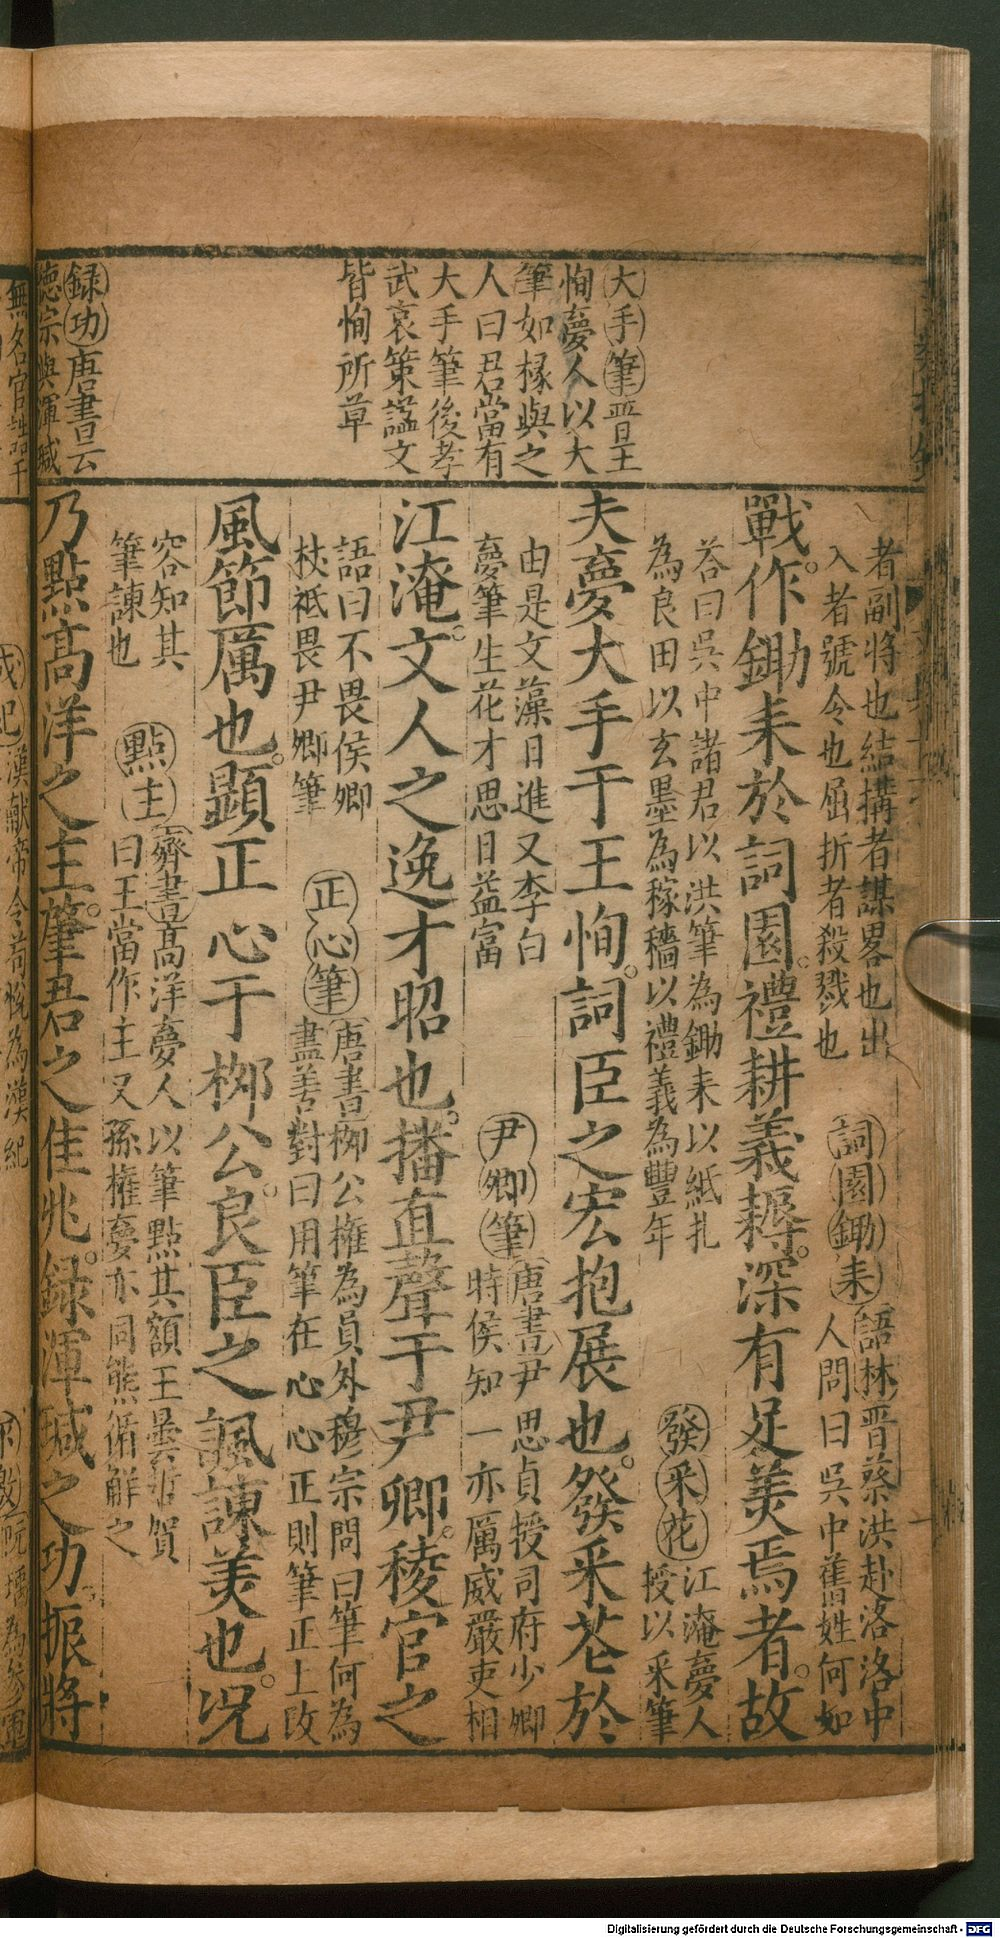 大手筆晋王
恂夢人以大
筆如椽與之
人曰君當有
大手筆後孝
武哀策謚文
皆恂所草
録功唐書云
德宗與渾瑊
者副將也結搆者謀畧也出
入者號令也屈折者殺戮也
詞園鋤耒
語林晋蔡洪赴洛洛中
人問曰吳中舊姓何如
戰。作鋤耒於詞園。禮耕義耨。深有足羙焉者。故
答曰吳中諸君以洪筆為鋤耒以紙扎
為良田以玄墨為稼穡以禮義為豐年
發釆花
江淹夢人
授以釆筆
夫夢大手于王恂。詞臣之宏抱展也。發釆花於
由是文藻日進又李白
夢筆生花才思日益富
尹卿筆
唐書尹思貞授司府少卿
時侯知一亦厲威嚴吏相
江淹。文人之逸才昭也。播直聲于尹卿。稜官之
語曰不畏侯卿
杖祗畏尹卿筆
正心筆
唐書桺公權為員外穆宗問曰筆何為
盡善對曰用筆在心心正則筆正上改
風節厲也。顕正心于桺公。良臣之諷諫羙也。况
容知其
筆諫也
點主
齊書高洋夢人以筆點其額王曇哲賀
曰王當作主又孫權夢亦同熊循解之
乃點高洋之主。肇君之佳兆。録渾瑊之功。振將
無名官
漢献帝令荀悅為漢紀
阮瑀為參軍
Digitalisierung gefördert durch die Deutsche Forschungsgemeinschaft - DFG